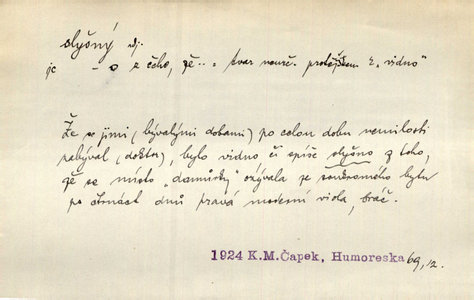 slyšný adj.
je -o z čeho, že.. . tvar neurč. protějškem k „vidno"
Že se jimi (bývalými dobami) po celou dobu nemilosti
zabýval (doktor), bylo vidno či spíše slyšno z toho,
že se místo „damůrky" ozývala ze soukromého bytu
po čtrnáct dnů pravá moderní viola, bráč.
1924 K.M.Čapek, Humoreska 69, 12.